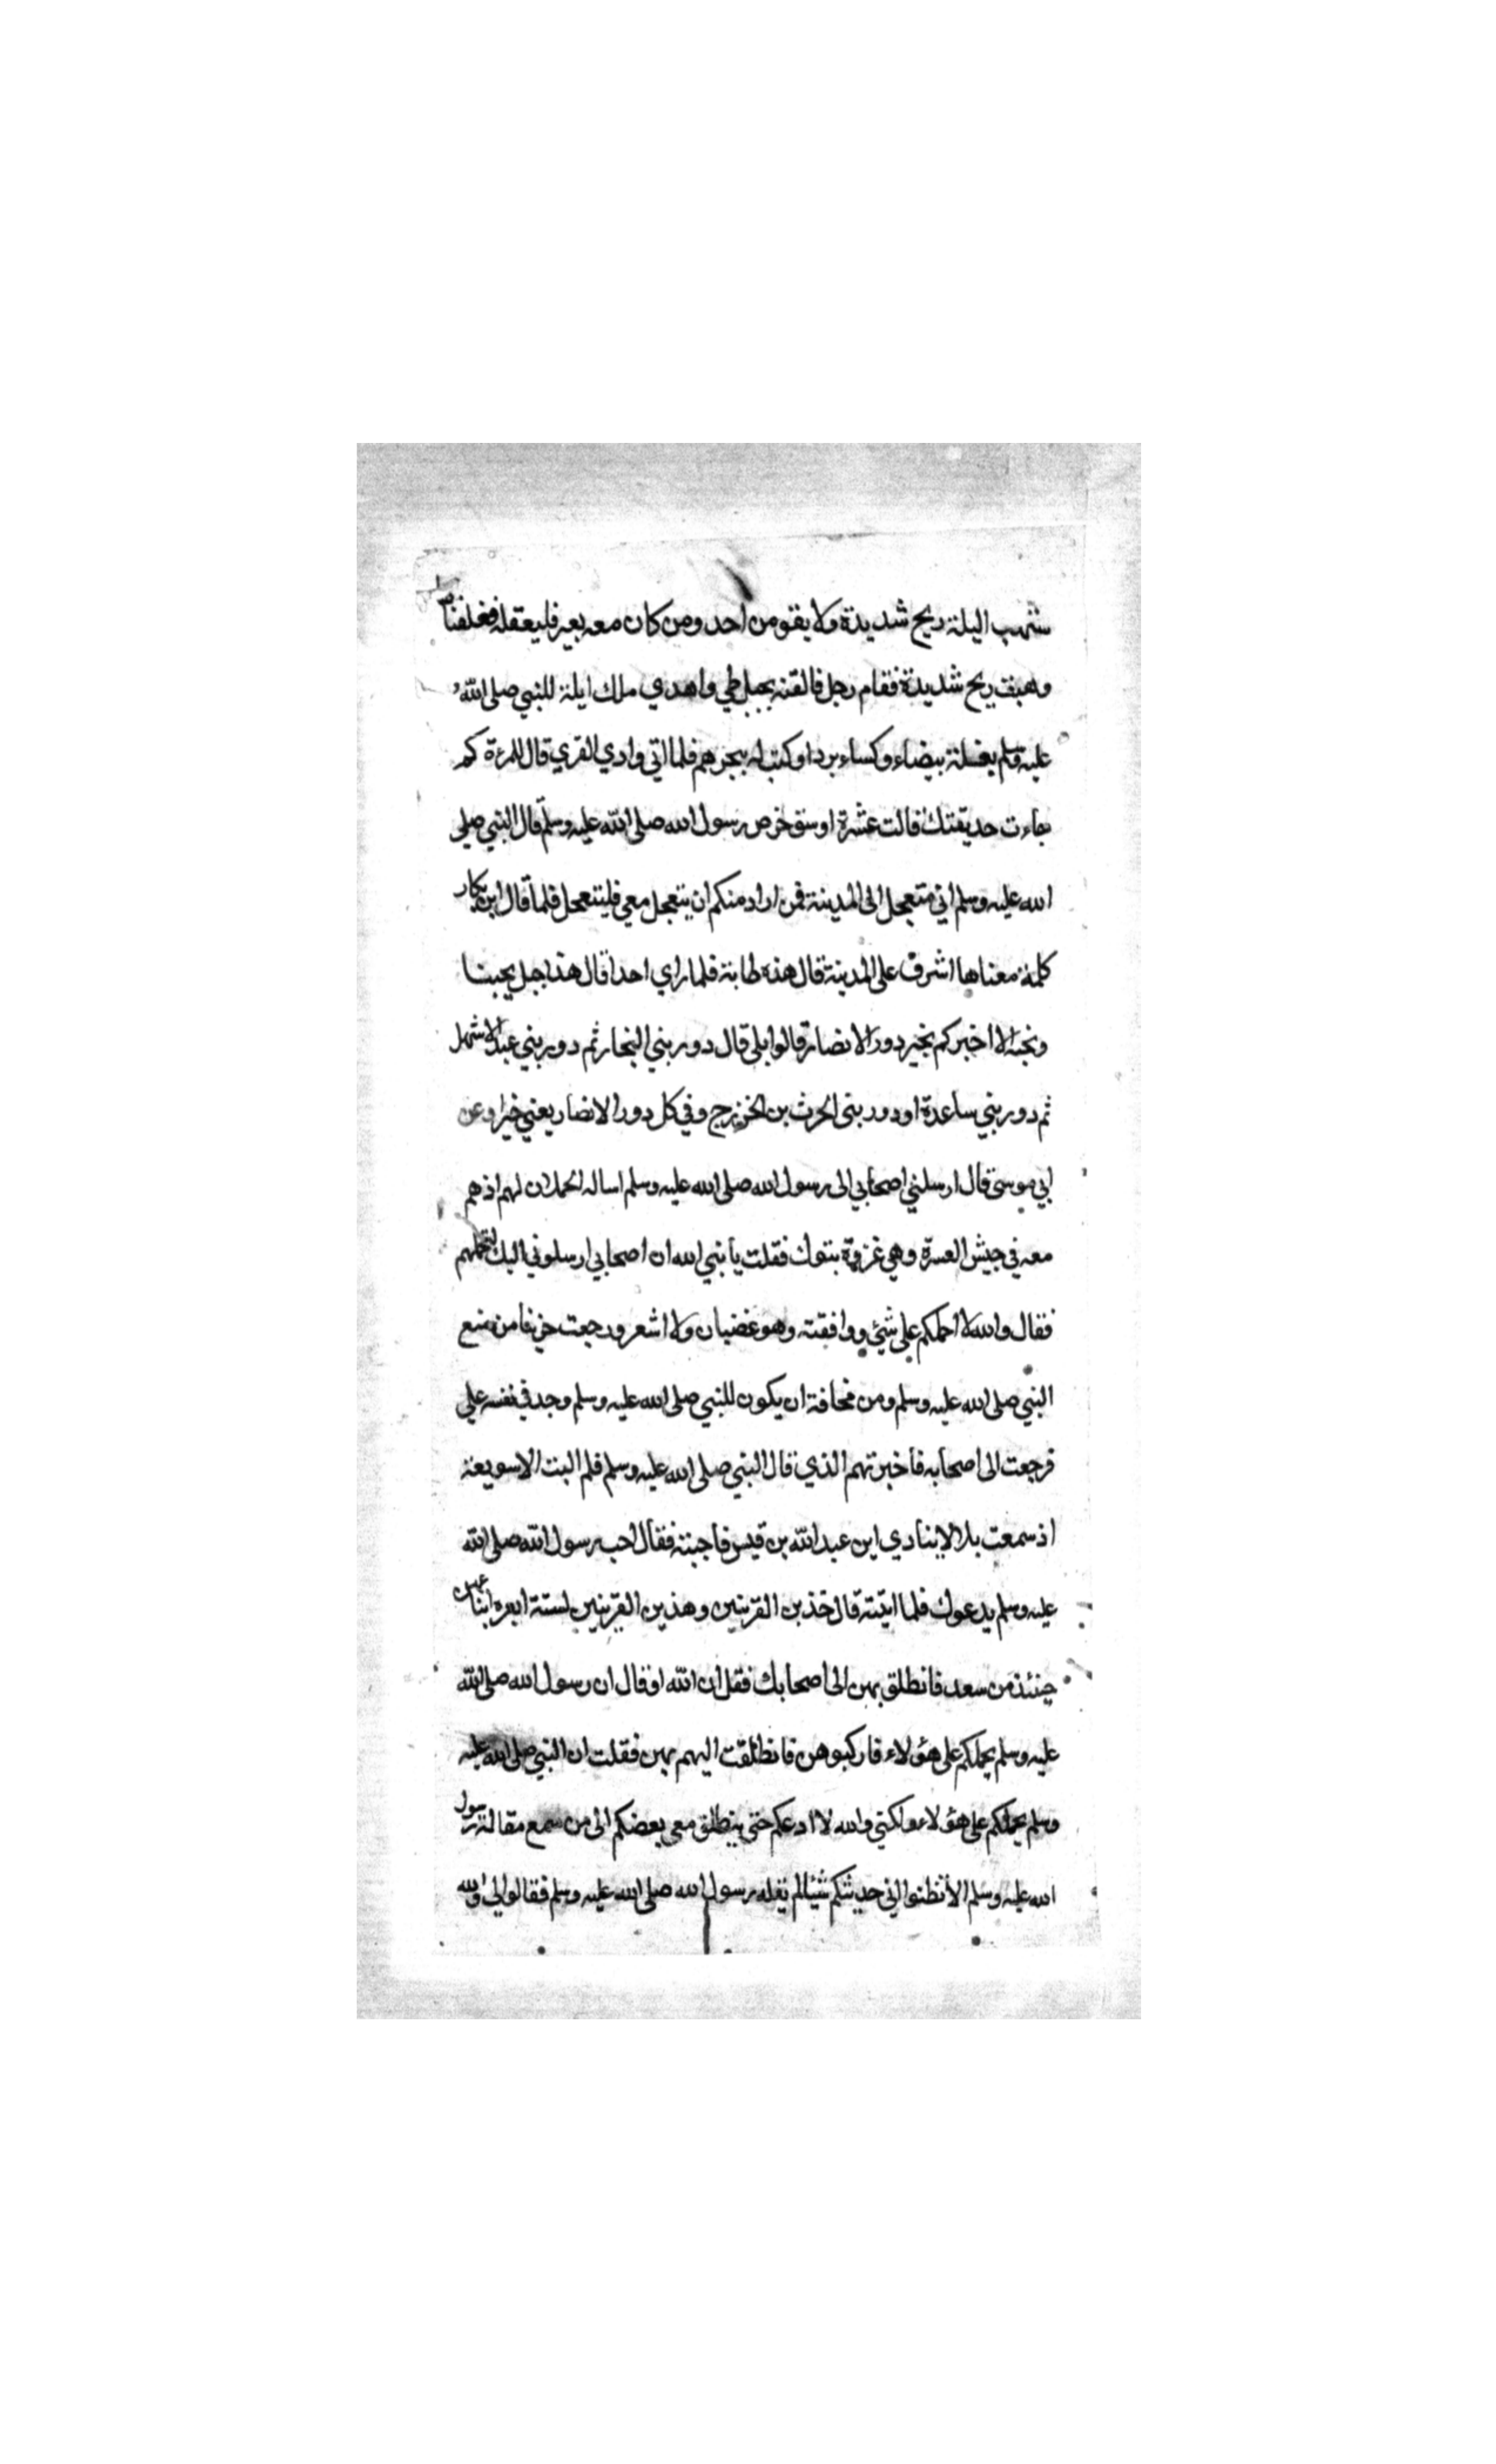 ستهب الليلة ريح شديدة ولا يقومن احد ومن كان معه بعير فليعقله فعقلناها
وهبت ريح شديدة فقام رجل فالقته بجبل طي واهدي ملك ايلة للنبي صلى الله
عليه وسلم بغلة بيضاء وكساه بردا وكتب له ببحرهم فلما اتي وادي القري قال للمرءة كم
جاءت حديقتك قالت عشرة اوسق خرص رسول الله صلى الله عليه وسلم قال النبي صلى
الله عليه وسلم اني متعجل الى المدينة فمن اراد منكم ان يتعجل معي فليتعجل فلما قال ابن بكار
كلمة معناها اشرف على المدينة قال هذه طابة فلما راي احدا قال هذا جبل يحبنا
ونحبه الا اخبركم بخير دور الانصار قالوا بلى قال دور بني النجار ثم دور بني عبد الاشهل
ثم دور بني ساعدة او دور بنى الحرث بن الخزرج وفي كل دور الانصار يعني خيرا وعن
ابي موسى قال ارسلني اصحابي الى رسول الله صلى الله عليه وسلم اساله الحملان لهم اذ هم
معه في جيش العسرة وهي غزوة بتوك فقلت يا نبي الله ان اصحابي ارسلوني اليك لتحملهم
فقال والله لا احملكم على شئ ووافقته وهو غضبان ولا اشعر ورجعت حزينا من منع
النبي صلى الله عليه وسلم ومن مخافة ان يكون للنبي صلى الله عليه وسلم وجد في نفسه علي
فرجعت الى اصحابه فأخبرتهم الذي قال النبي صلى الله عليه وسلم فلم البث الا سويعة
اذ سمعت بلالا ينادي اين عبد الله بن قيس فأجبته فقال اجب رسول الله صلى الله
عليه وسلم يدعوك فلما اتيته قال خذ بن القرينين وهذين القرينين لستة ابعره ابتاعهن
حينئذ من سعد فانطلق بهن الى اصحابك فقل ان الله او قال ان رسول الله صلى الله
عليه وسلم يحملكم على هؤلاء فاركبوهن فانطلقت اليهم بهن فقلت ان النبي صلى الله عليه
وسلم يحملكم على هؤلاء ولكني والله لا ادعكم حتى ينطلق معي بعضكم الى من سمع مقالة رسول
الله عليه وسلم الا تظنوا اني حديثكم شيئا لم يقله رسول الله صلى الله عليه وسلم فقالوا لي والله